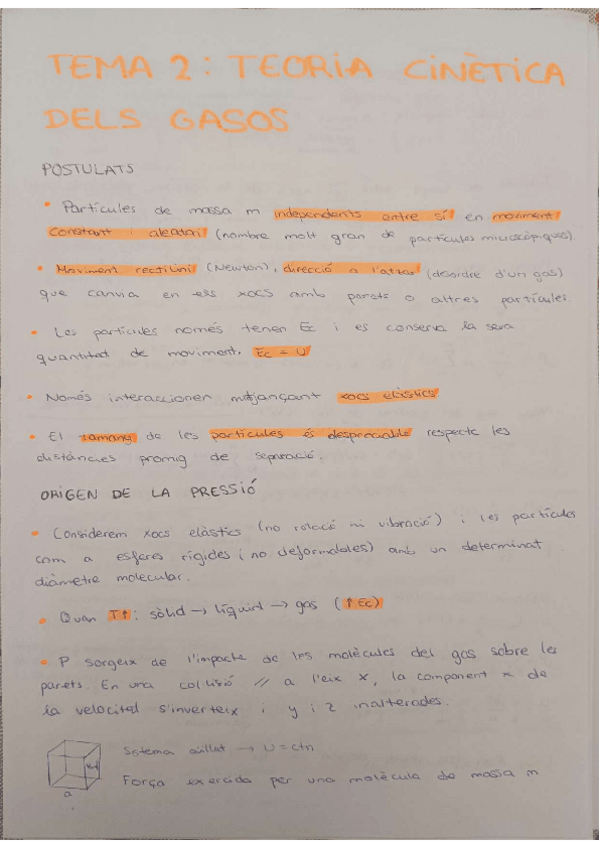 TEMA 2: TEORIA CINÈTICA
DELS GASOS
POSTULATS
• Partícules de massa m independents entre sí en moviment
constant i aleatori (nombre molt gran de partícules microscòpiques).
• Moviment rectilini (Newton), direcció a l'atzar (desordre d'un gas)
que canvia en els xocs amb parets o altres partícules.
• Les partícules només tenen Ec i es conserva la seva
quantitat de moviment. Ec = U
• Només interaccionen mitjançant xocs elàstics
• El tamany de les partícules és despreciable respecte les
distàncies promig de separació.
ORIGEN DE LA PRESSIÓ
• Considerem xocs elàstics (no rotació ni vibració) i les partícules
com a esferes rígides (no deformables) amb un determinat
diàmetre molecular.
• Quan T↑: sòlid → líquid → gas (↑Ec)
• P sorgeix de l'impacte de les molècules del gas sobre les
parets. En una col·lisió // a l'eix x, la component x de
la velocitat s'inverteix i y i z inalterades.
Sistema aïllat → U = ctn
Força exercida per una molècula de massa m
a